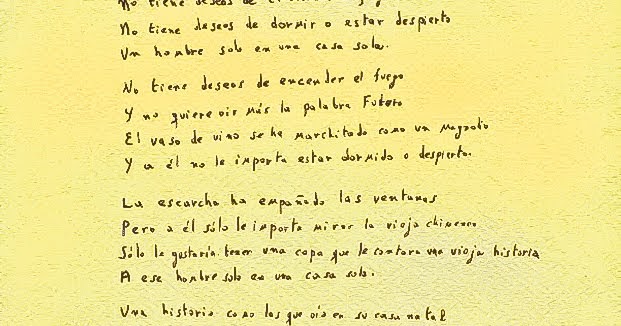 No tiene deseos de
No tiene deseos de dormir o estar despierto
Un hombre solo en una casa sola.
No tiene deseos de encender el fuego
Y no quiere oir más la palabra Futuro
El vaso de vino se ha marchitado como un Magnolio
Y a él no le importa estar dormido o despierto.
La escarcha ha empañado las ventanas
Pero a él sólo le importa mirar la vieja chimenea
Sólo le gustaría tener una copa que le contara una vieja historia
A ese hombre solo en una casa sola.
Una historia como las que oía en su casa natal